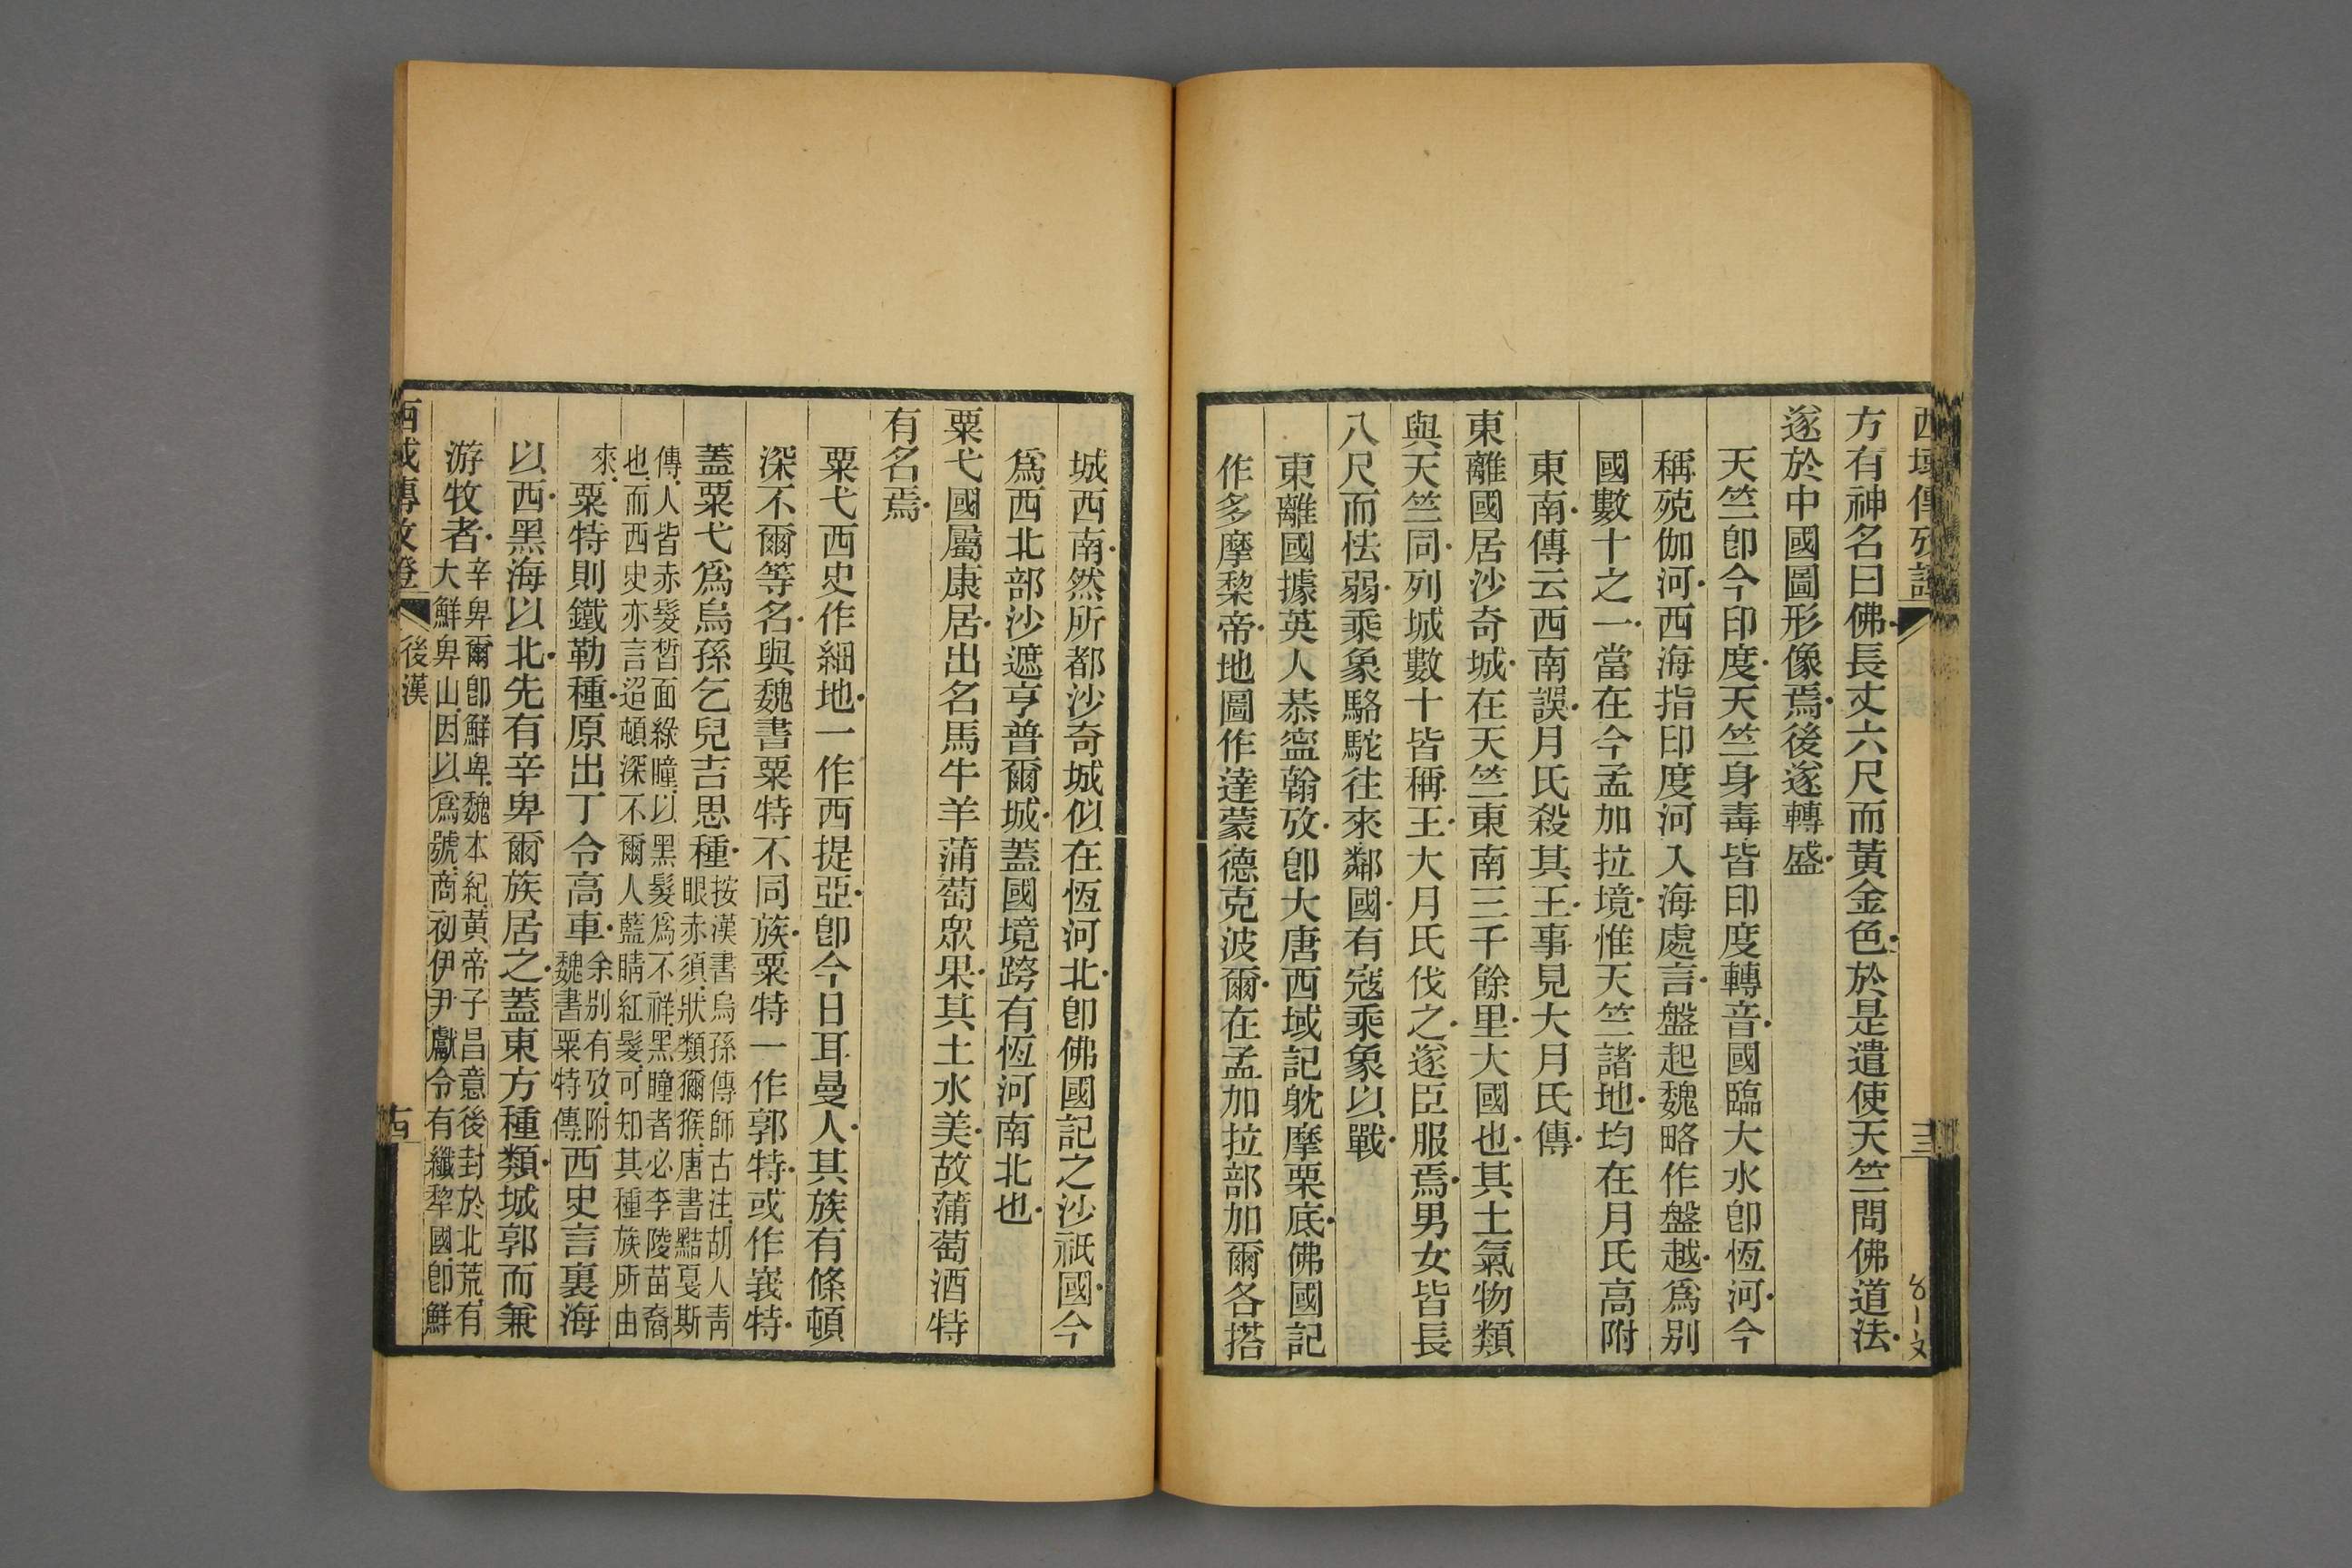 西域傳攷證
方有神名曰佛長丈六尺而黃金色於是遣使天竺問佛道法
遂於中國圖形像焉後遂轉盛
天竺卽今印度天竺身毒皆印度轉音國臨大水卽恆河今
稱殑伽河西海指印度河入海處言盤起魏略作盤越爲别
國數十之一當在今孟加拉境惟天竺諸地均在月氏高附
東南傳云西南誤月氏殺其王事見大月氏傳
東離國居沙奇城在天竺東南三千餘里大國也其土氣物類
與天竺同列城數十皆稱王大月氏伐之遂臣服焉男女皆長
八尺而怯弱乘象駱駝往來鄰國有寇乘象以戰
東離國據英人恭寍翰攷卽大唐西域記躭摩栗底佛國記
作多摩棃帝地圖作達蒙德克波爾在孟加拉部加爾各搭
城西南然所都沙奇城似在恆河北卽佛國記之沙祇國今
爲西北部沙遮亨普爾城蓋國境跨有恆河南北也
粟弋國屬康居出名馬牛羊蒲萄眾果其土水美故蒲萄酒特
有名焉
粟弋西史作細地一作西提亞卽今日耳曼人其族有條頓
深不爾等名與魏書粟特不同族粟特一作郭特或作峩特
蓋粟弋爲烏孫乞兒吉思種按漢書烏孫傳師古注胡人靑
眼赤須狀類獼猴唐書黠戛斯
傳人皆赤髮皙面綠瞳以黑髮爲不祥黑瞳者必李陵苗裔
也而西史亦言迢頓深不爾人藍睛紅髮可知其種族所由
來粟特則鐵勒種原出丁令高車余别有攷附
魏書粟特傳西史言裏海
以西黑海以北先有辛卑爾族居之蓋東方種類城郭而兼
游牧者辛卑爾卽鮮卑魏本紀黃帝子昌意後封於北荒有
大鮮卑山因以爲號商初伊尹獻令有纖犂國卽鮮
西域傳攷證 後漢